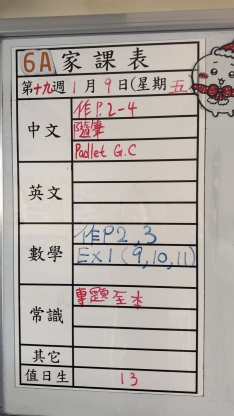 6A 家課表
第十九週 1月9日(星期五
中文
作P.2-4
隨筆
Padlet G.C
英文
數學
作P2,3
Ex1(9,10,11)
常識
專題至本
其它
值日生 13